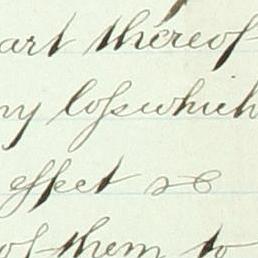 art thereof
ny loſs which
effect &c
of them to